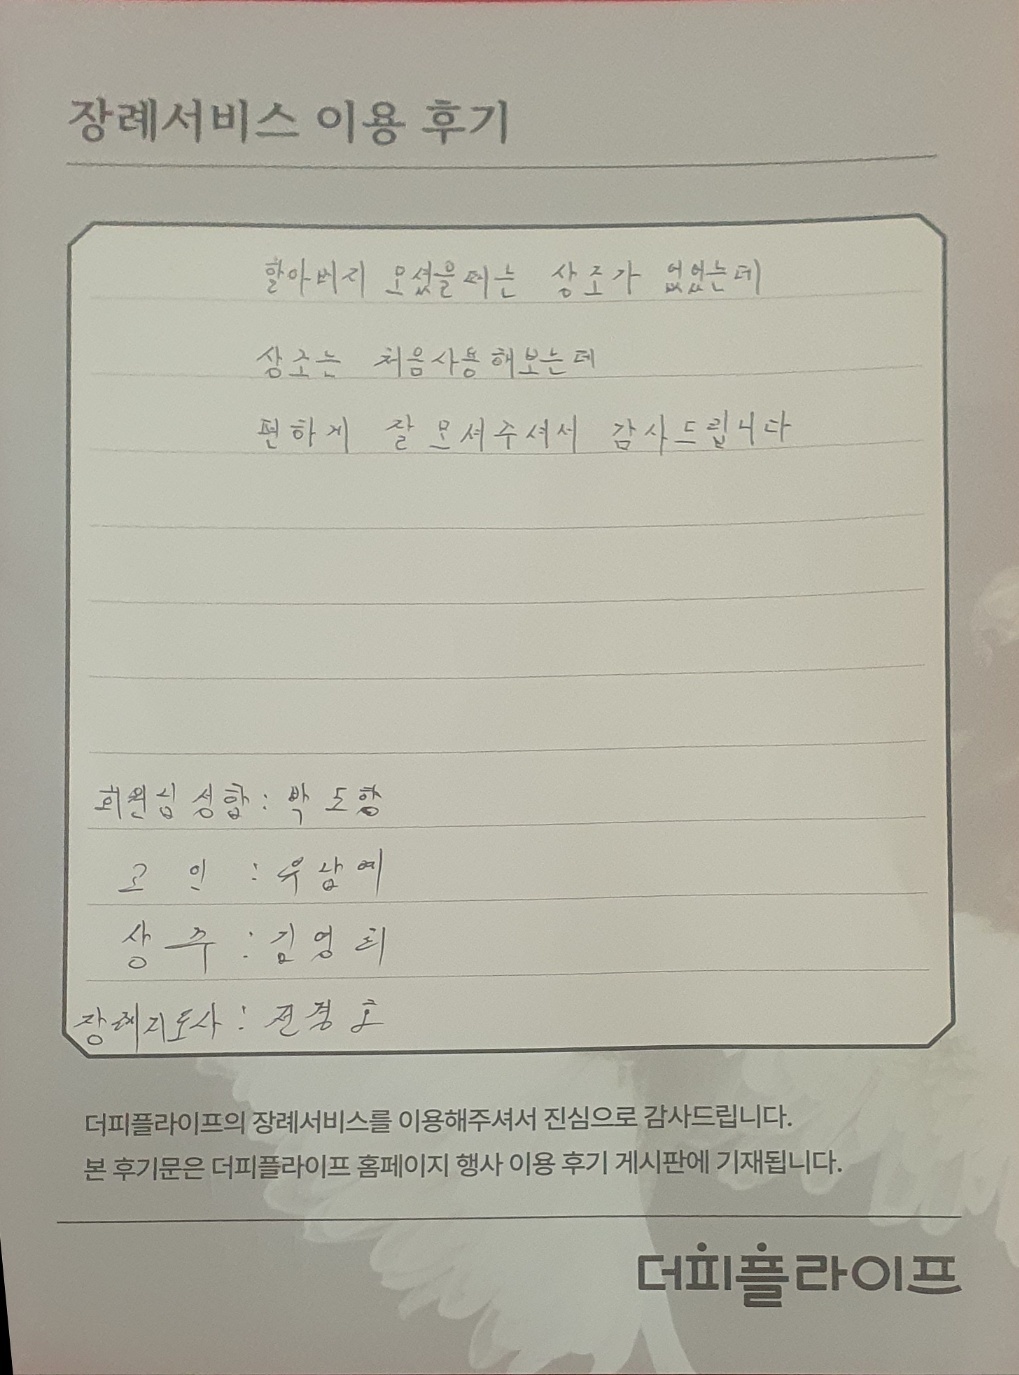 장례서비스 이용 후기
할아버지 모셨을때는 상조가 없었는데
상조는 처음사용해보는데
편하게 잘 모셔주셔서 감사드립니다
회원님 성함 : 박도항
고인 : 우남예
상주 : 김영희
장례지도사 : 전경호
더피플라이프의 장례서비스를 이용해주셔서 진심으로 감사드립니다.
본 후기문은 더피플라이프 홈페이지 행사 이용 후기 게시판에 기재됩니다.
더피플라이프